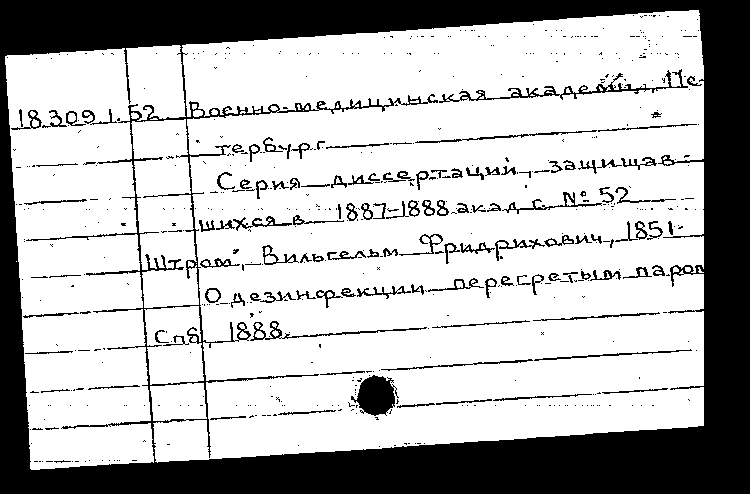 18.309.1.52 Военно-медицинская академия, Пе-
тербург
Серия диссертаций, защищав-
шихся в 1887-1888 акад г. № 52
Штром, Вильгельм Фридрихович, 1851-
О дезинфекции перегретым паром
Спб, 1888.